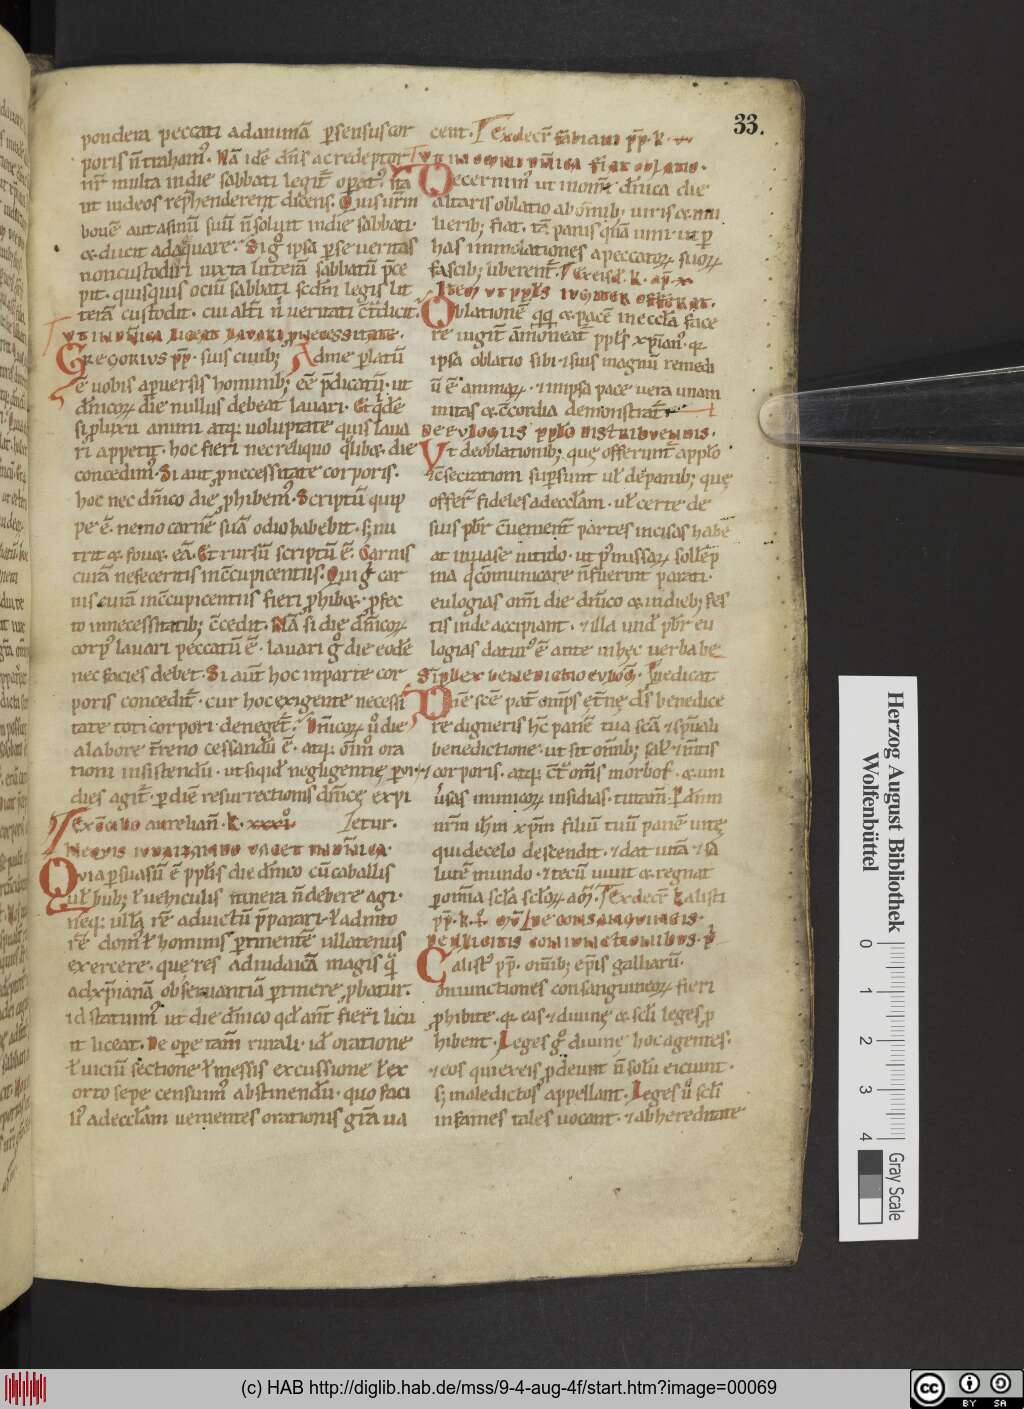 33.
pondera peccati adanimā ꝑsensus cor
poris n̄ trahamꝰ. Nā idē dn̄s ac redeptor
nr̄ multa in die sabbati legit̄ oꝑatꝰ. ita
ut iudeos rephenderent dicens. Quis urm̄
bouē aut asinū suū n̄ soluit in die sabbati.
& ducit adaquare. Si gͦ ipsa ꝑse ueritas
non custodiri iuxta litterā sabbatū p̄ce
pit. quisquis ociū sabbati scdm̄ legis lit
terā custodit. cui alt̄i ñ ueritati c̄tͣdicit.
Vt in dn̄ica liceat lauari ꝓ necessitate.
GREGORIVS pp̄. suis ciuib; Ad me platū
ē uobis a puersis hominib; eē p̄dicatū. ut
dn̄icoꝝ die nullus debeat lauari. Et qͥdē
si ꝓ luxu animi atq; uoluptate quis laua
ri appetit. hoc fieri nec reliquo qͣlib& die
concedimꝰ. Si aut ꝓ necessitate corporis.
hoc nec dn̄ico die ꝓhibemꝰ. Scriptū quip
pe ē. nemo carnē suā odio habebit. s; nu
trit & fou& eā. Et rursū scriptū ē. Carnis
curā ne feceritis in c̄cupicentiis. Qui gͦ car
nis curā in c̄cupicentiis fieri ꝓhib&. ꝓfec
to in necessitatib; c̄cedit. Nā si die dn̄icoꝝ
corpꝰ lauari peccatū ē. lauari gͦ die eodē
nec facies debet. Si aut̄ hoc in parte cor
poris concedit̄. cur hoc exigente necessi
tate toti corpori deneget̄. Dn̄icoꝝ uͦ die
a labore t̄reno cessandū ē. atq; om̄i ora
tioni insistendū. ut siqͥd negligentię ꝑ vi
dies agit̄. ꝑ diē resurrectionis dn̄icę expi
Ex c̄cilio aurelian̄. k. xxxiͦ. etur.
Ne quis iudaizando uacet in dn̄ica.
Quia ꝑsuasū ē ppl̄is die dn̄ico cū caballis
ł bub; ł uehiculis itinera n̄ debere agi.
neq; ullā rē ad uictū p̄parari. ł ad nito
rē dom ł hominis ꝑtinentē ullatenus
exercere. que res ad iudaicā magis qͣ
ad xp̄ianā obseruantiā ꝑtinere ꝓbatur.
id statuimꝰ ut die dn̄ico qd̄ ant̄ fieri licu
it liceat. De opere tam̄ rurali. id ͛ oratione
ł uicinū sectione ł messis excussione ł ex
orto sepe censuimꝰ abstinendū. quo faci
liꝰ ad eccl̄am uenientes orationis gr̄a ua
cent. Ex decr̄ fabiani pp̄. k.
Vt in omni dn̄ica fiat oblatio.
Decernimꝰ ut in om̄i dn̄ica die
altaris oblatio ab om̄ib; uiris & mu
lierib; fiat. tā panis quā uini. ut ꝑ
has immolationes a peccatoꝝ suoꝝ
fascib; liberent̄. Ex eisd̄. k.
Item ut ppl̄s
Oblationē qq; & pacē in eccl̄a face
re iugit̄ āmoneat̄ ppl̄s xp̄ianꝰ. qͥ
ipsa oblatio sibi & suis magnū remedi
ū ē animaꝝ. & in ipsa pace uera unani
mitas & c̄cordia demonstrat̄
De eulogiis ppl̄o distribuendis.
Vt de oblationib; quę offerunt̄ a pplo
& c̄secrationi suꝑsunt uł de panib; quę
offer̄ fideles ad eccl̄am. uł certe de
suis pbr̄ c̄uenient̄ partes incisas habē
at in uase nitido. ut pꝰ missaꝝ sollēp
nia qͥ c̄municare n̄ fuerint parati.
eulogias om̄i die dn̄ico & in dieb; fes
tis inde accipiant. & illa unde pbr̄ eu
logias daturꝰ ē ante in hęc uerba be
Siplex benedictio eulog. nedicat
Dn̄e scē pat̄ omp̄s et̄ne ds̄ benedice
re digneris hc̄ panē tua scā & sp̄uali
benedictione. ut sit om̄ib; sal & m̄tis
& corporis. atq; c̄tͣ om̄s morbos. & uni
ūsas inimicoꝝ insidias tutam̄. ꝑ dn̄m
nr̄m ihm xp̄m filiū tuū panē uitę
qui de celo descendit. & dat uitā & sa
lutē mundo. & tecū uiuit & regnat
ꝑ omnia scl̄a scl̄oꝝ. am̄. Ex decr̄ Kalisti
pp̄. De consanguineis.
Calistꝰ pp̄. om̄ib; ep̄is galliarū.
Coniunctiones consanguineoꝝ fieri
ꝓhibite. qͥ eas & diuinę & scl̄i leges ꝓ
hibent. Leges gͦ diuine hoc agentes.
& eos qui ex eis ꝓdeunt n̄ solū eiciunt.
s; maledictos appellant. Leges uͦ scl̄i
infames tales uocant. & ab hereditate
Herzog August Bibliothek
Wolfenbüttel
0 1 2 3 4
Gray Scale
(c) HAB http://diglib.hab.de/mss/9-4-aug-4f/start.htm?image=00069
cc BY SA